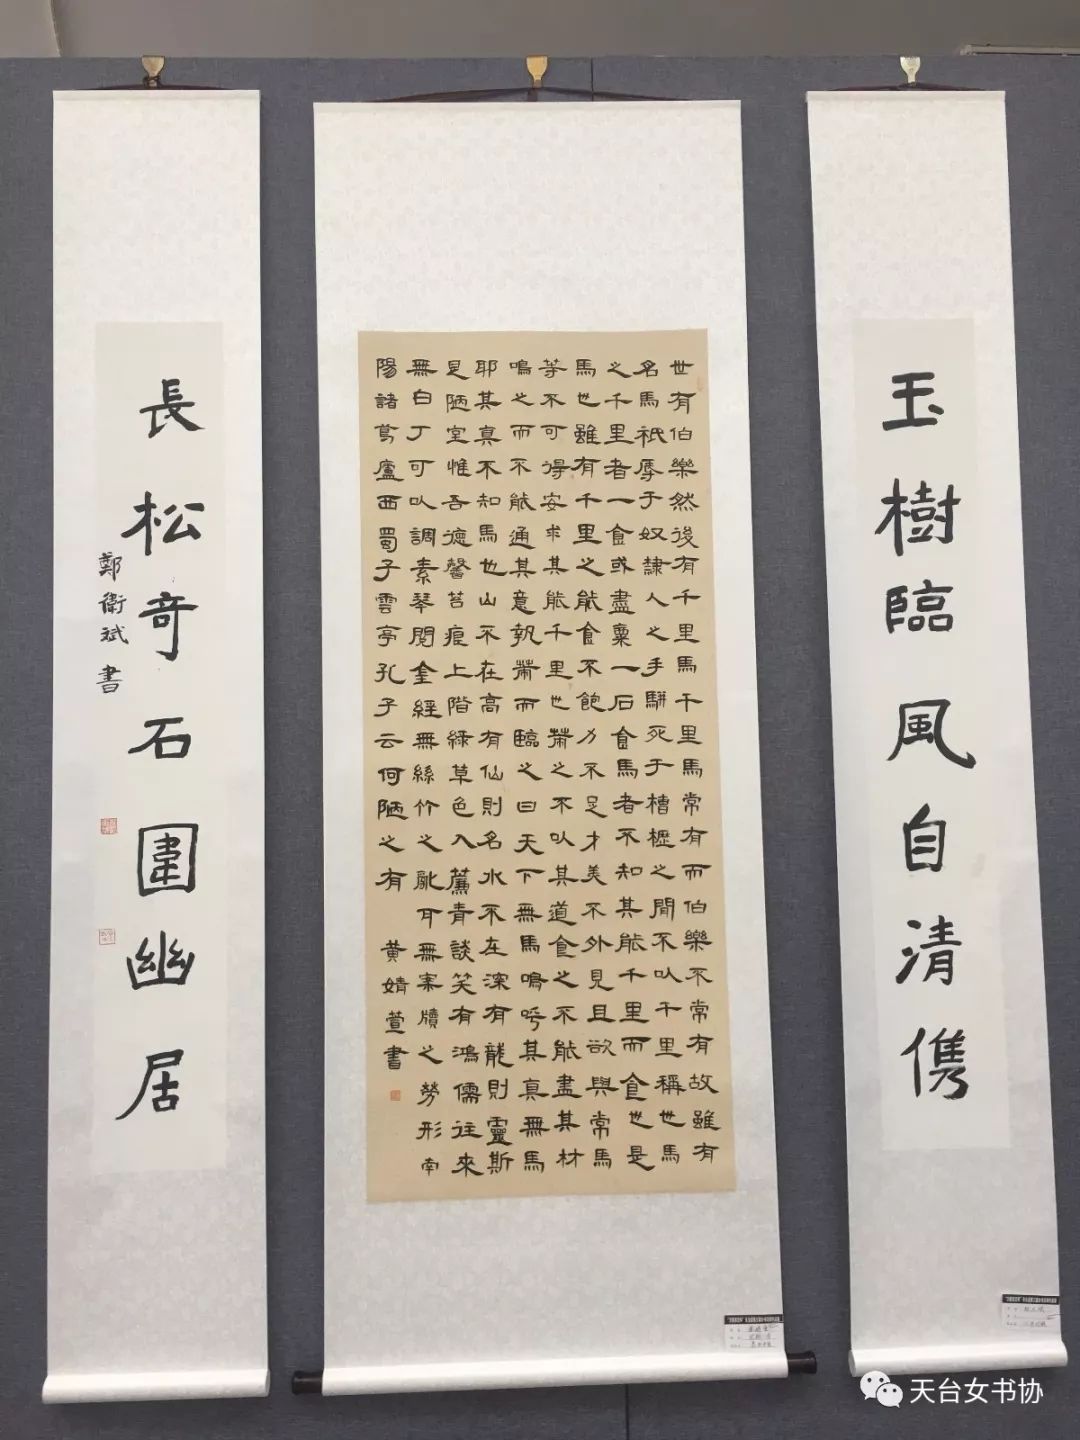 玉樹臨風自清儁
世有伯樂然後有千里馬千里馬常有而伯樂不常有故雖有
名馬祇辱于奴隸人之手駢死于槽櫪之間不以千里稱也馬
之千里者一食或盡粟一石食馬者不知其能千里而食也是
馬也雖有千里之能食不飽力不足才美不外見且欲與常馬
等不可得安求其能千里也策之不以其道食之不能盡其材
鳴之而不能通其意執策而臨之曰天下無馬嗚呼其真無馬
耶其真不知馬也山不在高有仙則名水不在深有龍則靈斯
是陋室惟吾德馨苔痕上階綠草色入簾青談笑有鴻儒往來
無白丁可以調素琴閱金經無絲竹之亂耳無案牘之勞形南
陽諸葛廬西蜀子雲亭孔子云何陋之有
黃婧萱書
長松奇石圍幽居
鄭衛斌書
天台女书协